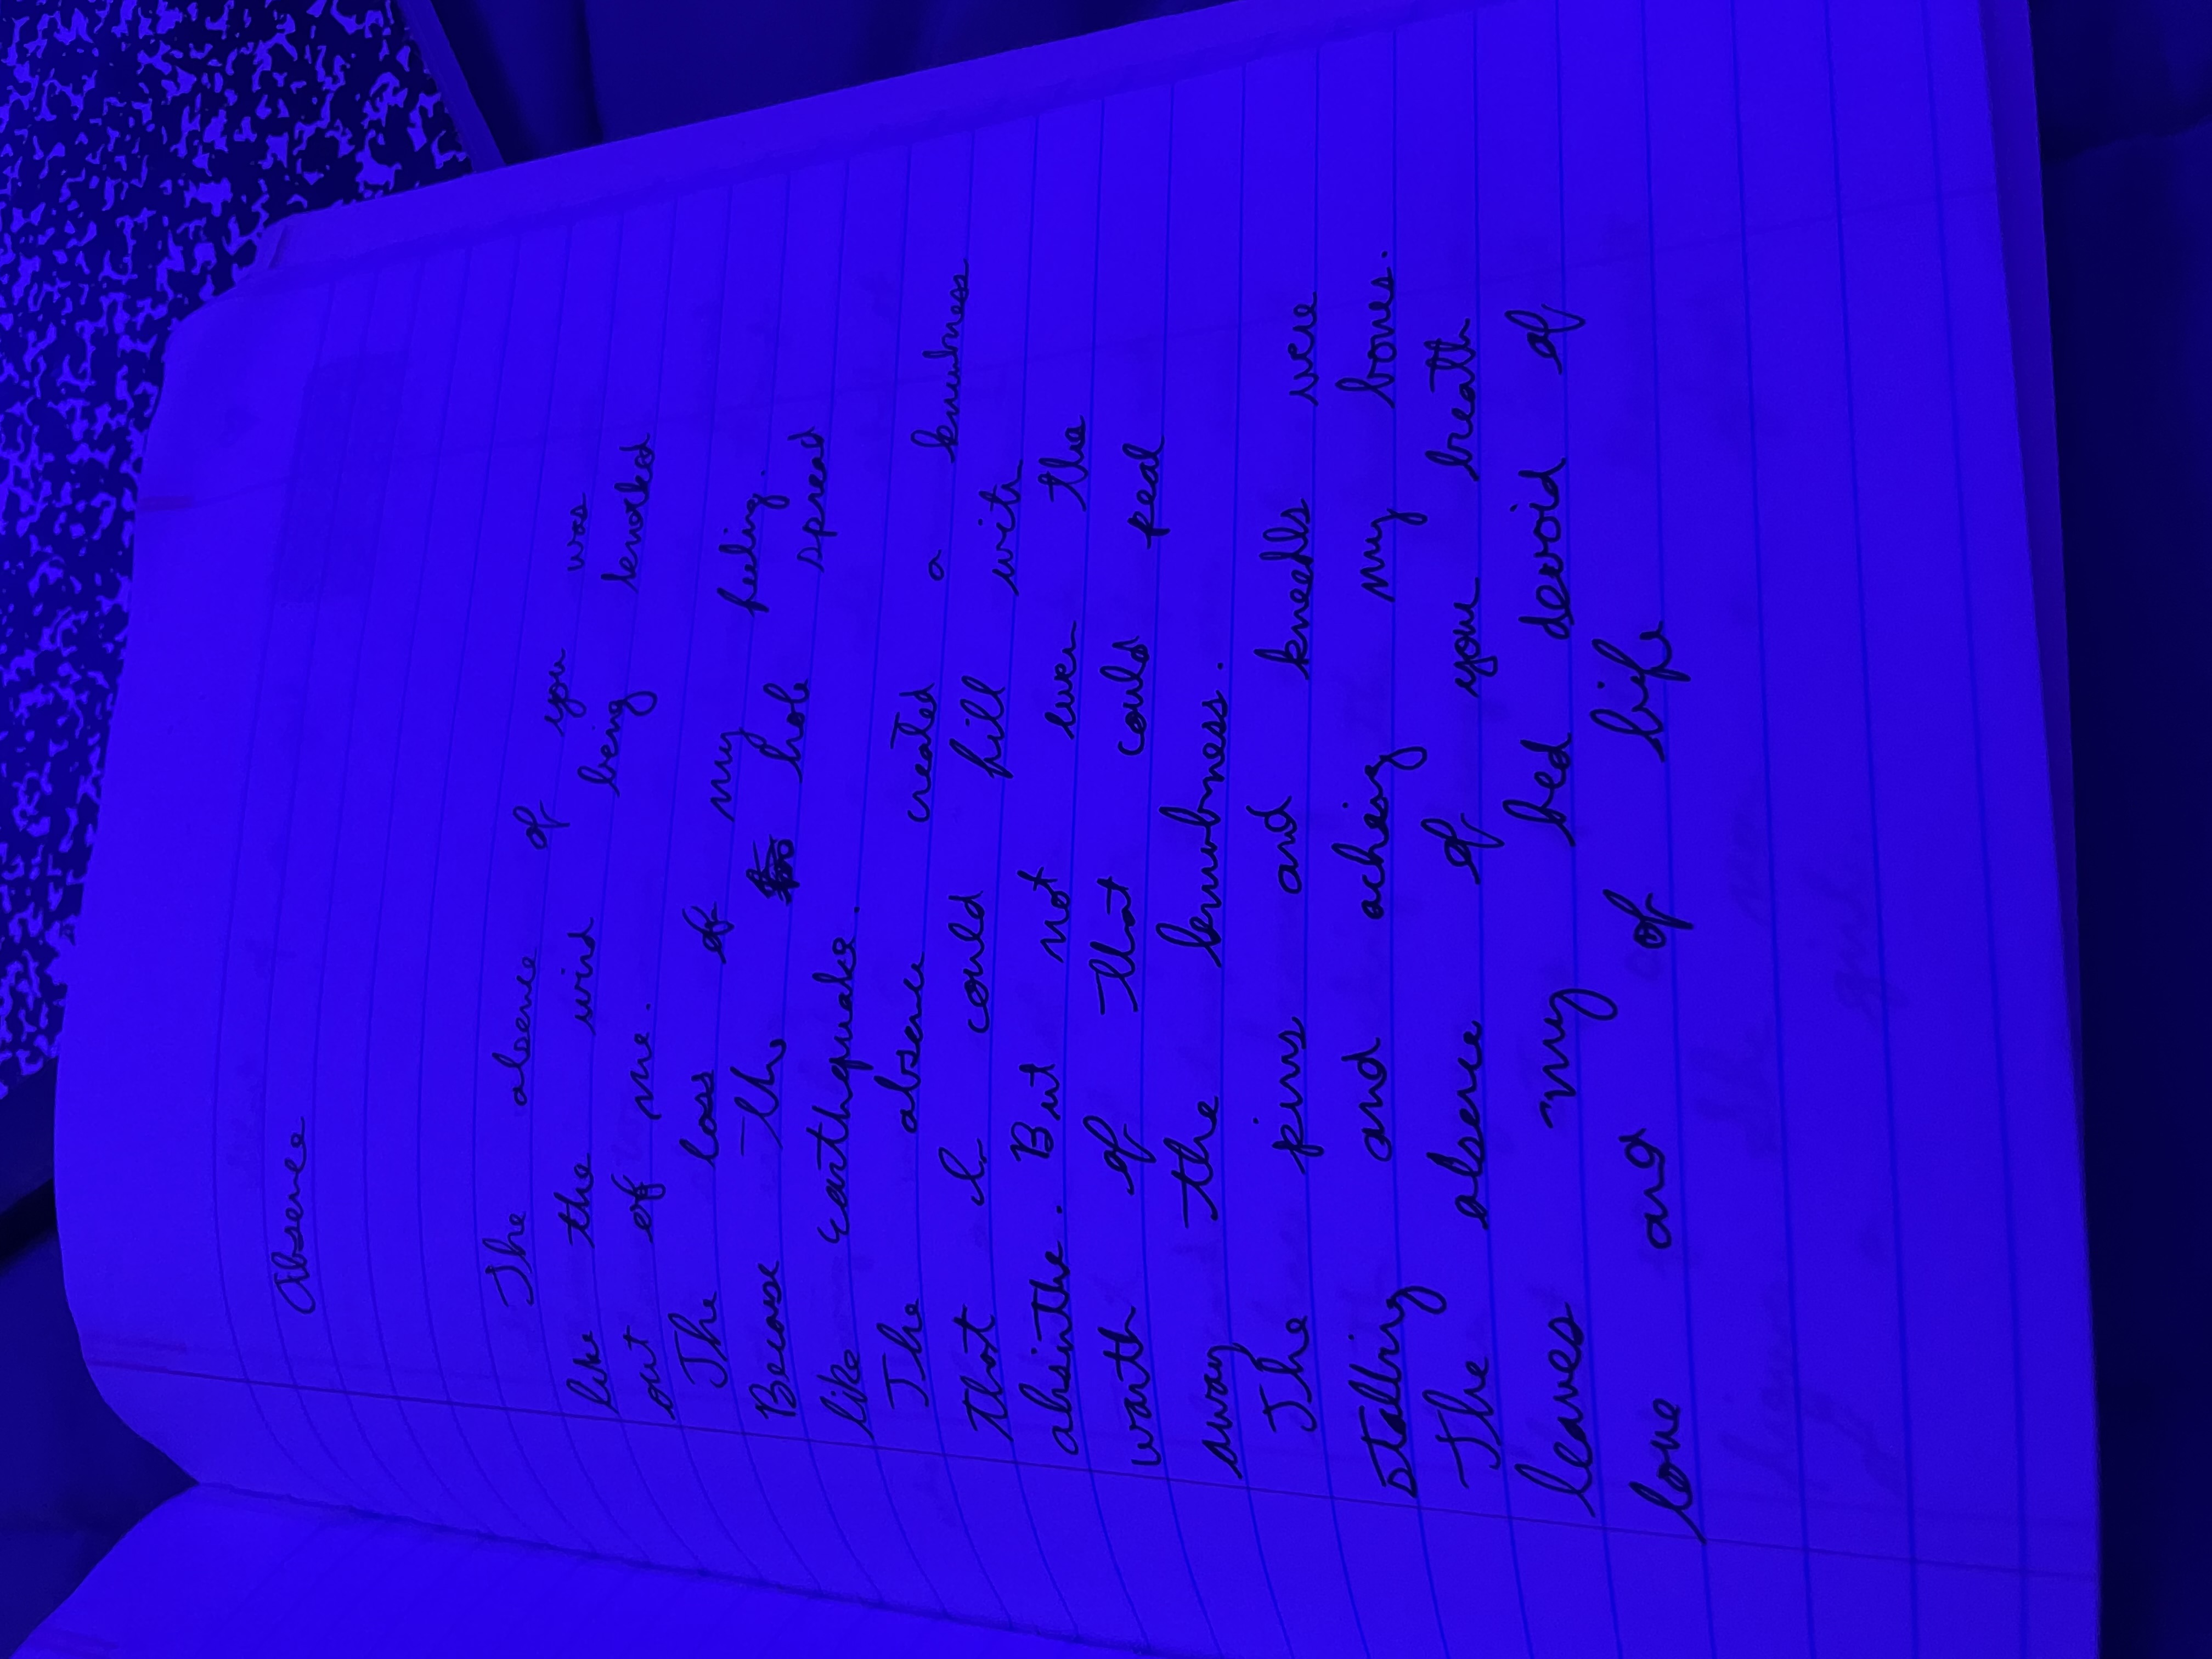 Absence
The absence of you was
like the wind being knocked
out of me.
The loss of my feeling.
Because the hole spread
like earthquake.
The absence created a knumbness
that I could fill with
absinthe. But not even the
warth of that could peal
away the knumbness.
The pins and kneedls were
stalling and aching my bones.
The absence of you breath
leaves my bed devoid of
love and of life